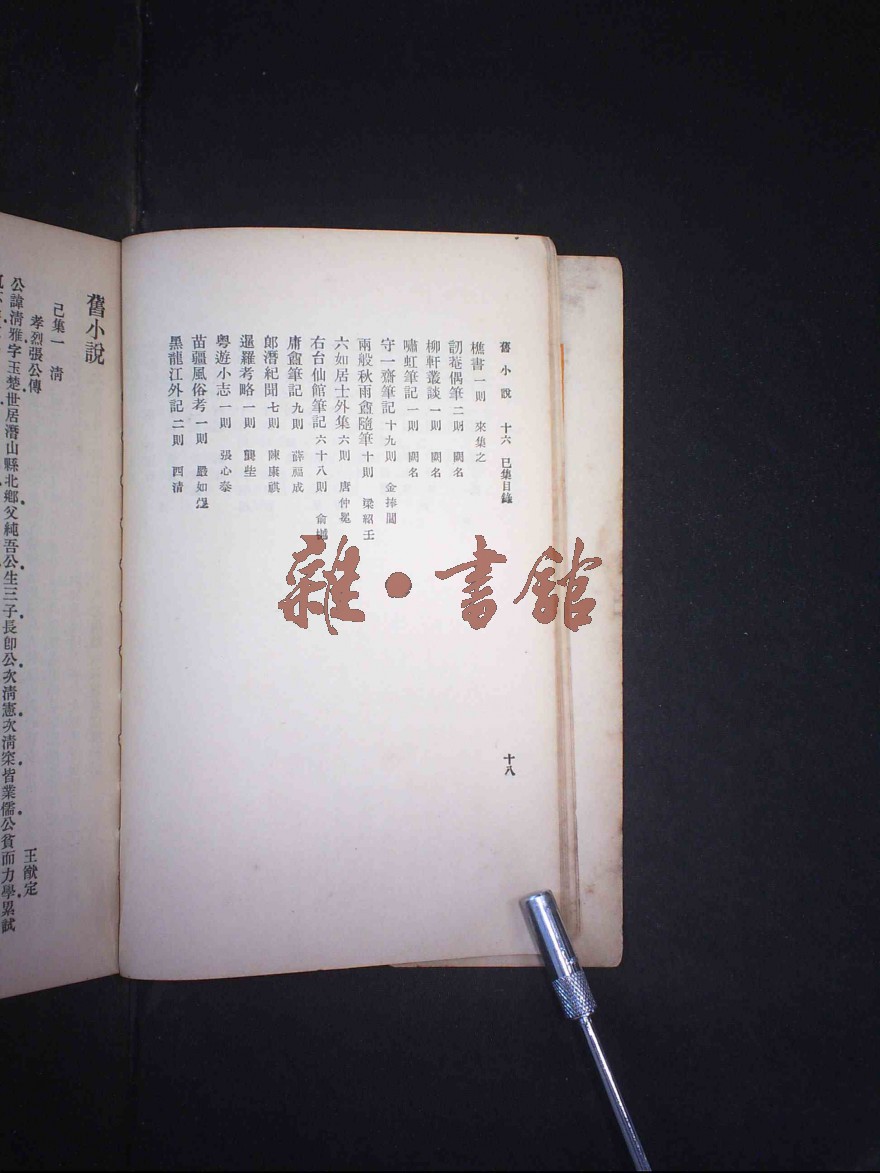 舊小說 十六 己集目錄
樵書一則 來集之
訒菴偶筆二則 闕名
柳軒叢談一則 闕名
嘯虹筆記一則 闕名
守一齋筆記十九則 金捧閶
兩般秋雨盦隨筆十則 梁紹壬
六如居士外集六則 唐仲冕
右台仙館筆記六十八則 俞樾
庸盦筆記九則 薛福成
郎潛紀聞七則 陳康祺
暹羅考略一則 龔柴
粵遊小志一則 張心泰
苗疆風俗考一則 嚴如熤
黑龍江外記二則 西清
十八
舊小說
己集一 清
孝烈張公傳 王猷定
公諱清雅字玉楚世居潛山縣北鄉父純吾公生三子長卽公次清憲次清寀皆業儒公貧而力學累試
雜·書館